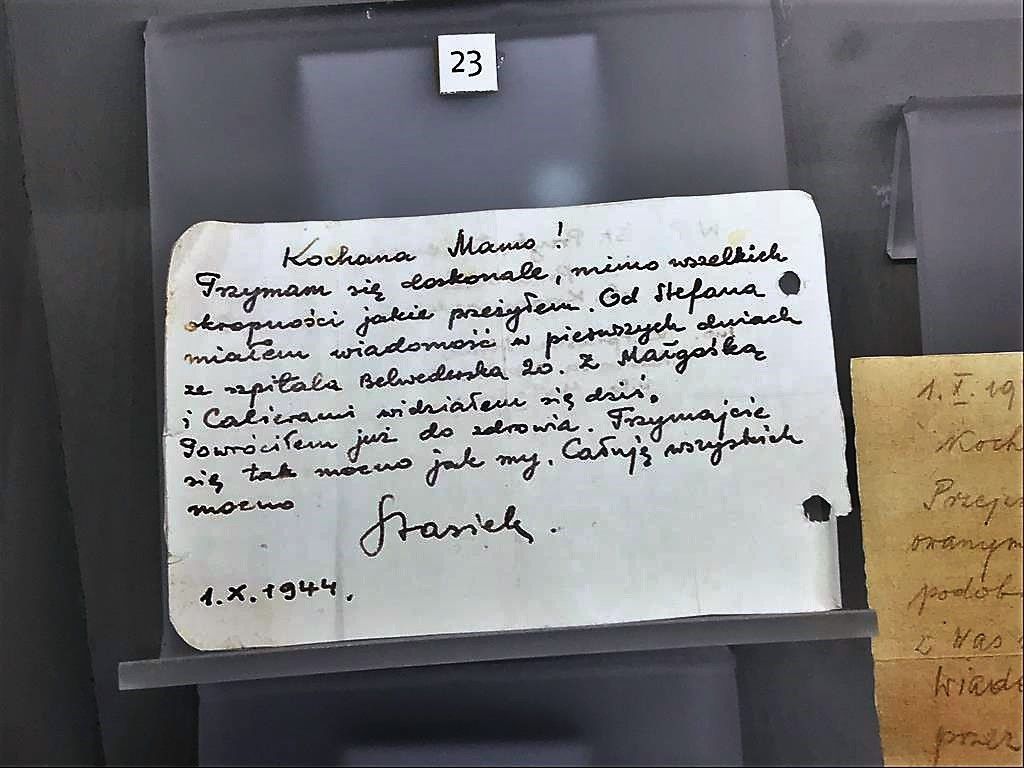 23
Kochana Mamo!
Trzymam się doskonale, mimo wszelkich
okropności jakie przeżyłem. Od Stefana
miałem wiadomość w pierwszych dniach
ze szpitala Belwederska 20. Z Małgośką
i Calierami widziałem się dziś.
Powróciłem już do zdrowia. Trzymajcie
się tak mocno jak my. Całuję wszystkich
mocno
Stasiek.
1.X.1944.
1.X.19
Koch
Przej
podob
z Was
Wiado
przez